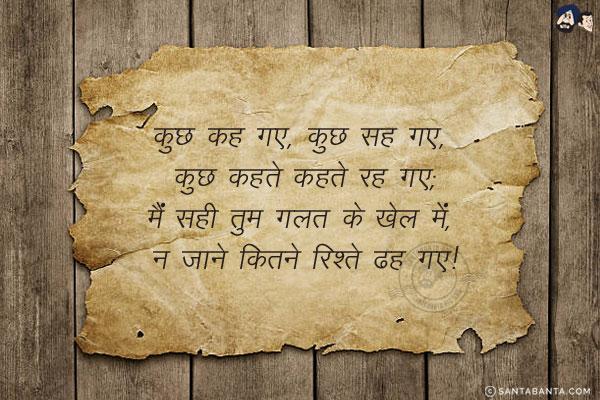 कुछ कह गए, कुछ सह गए,
कुछ कहते कहते रह गए;
मैं सही तुम गलत के खेल में,
न जाने कितने रिश्ते ढह गए!
© SANTABANTA.COM